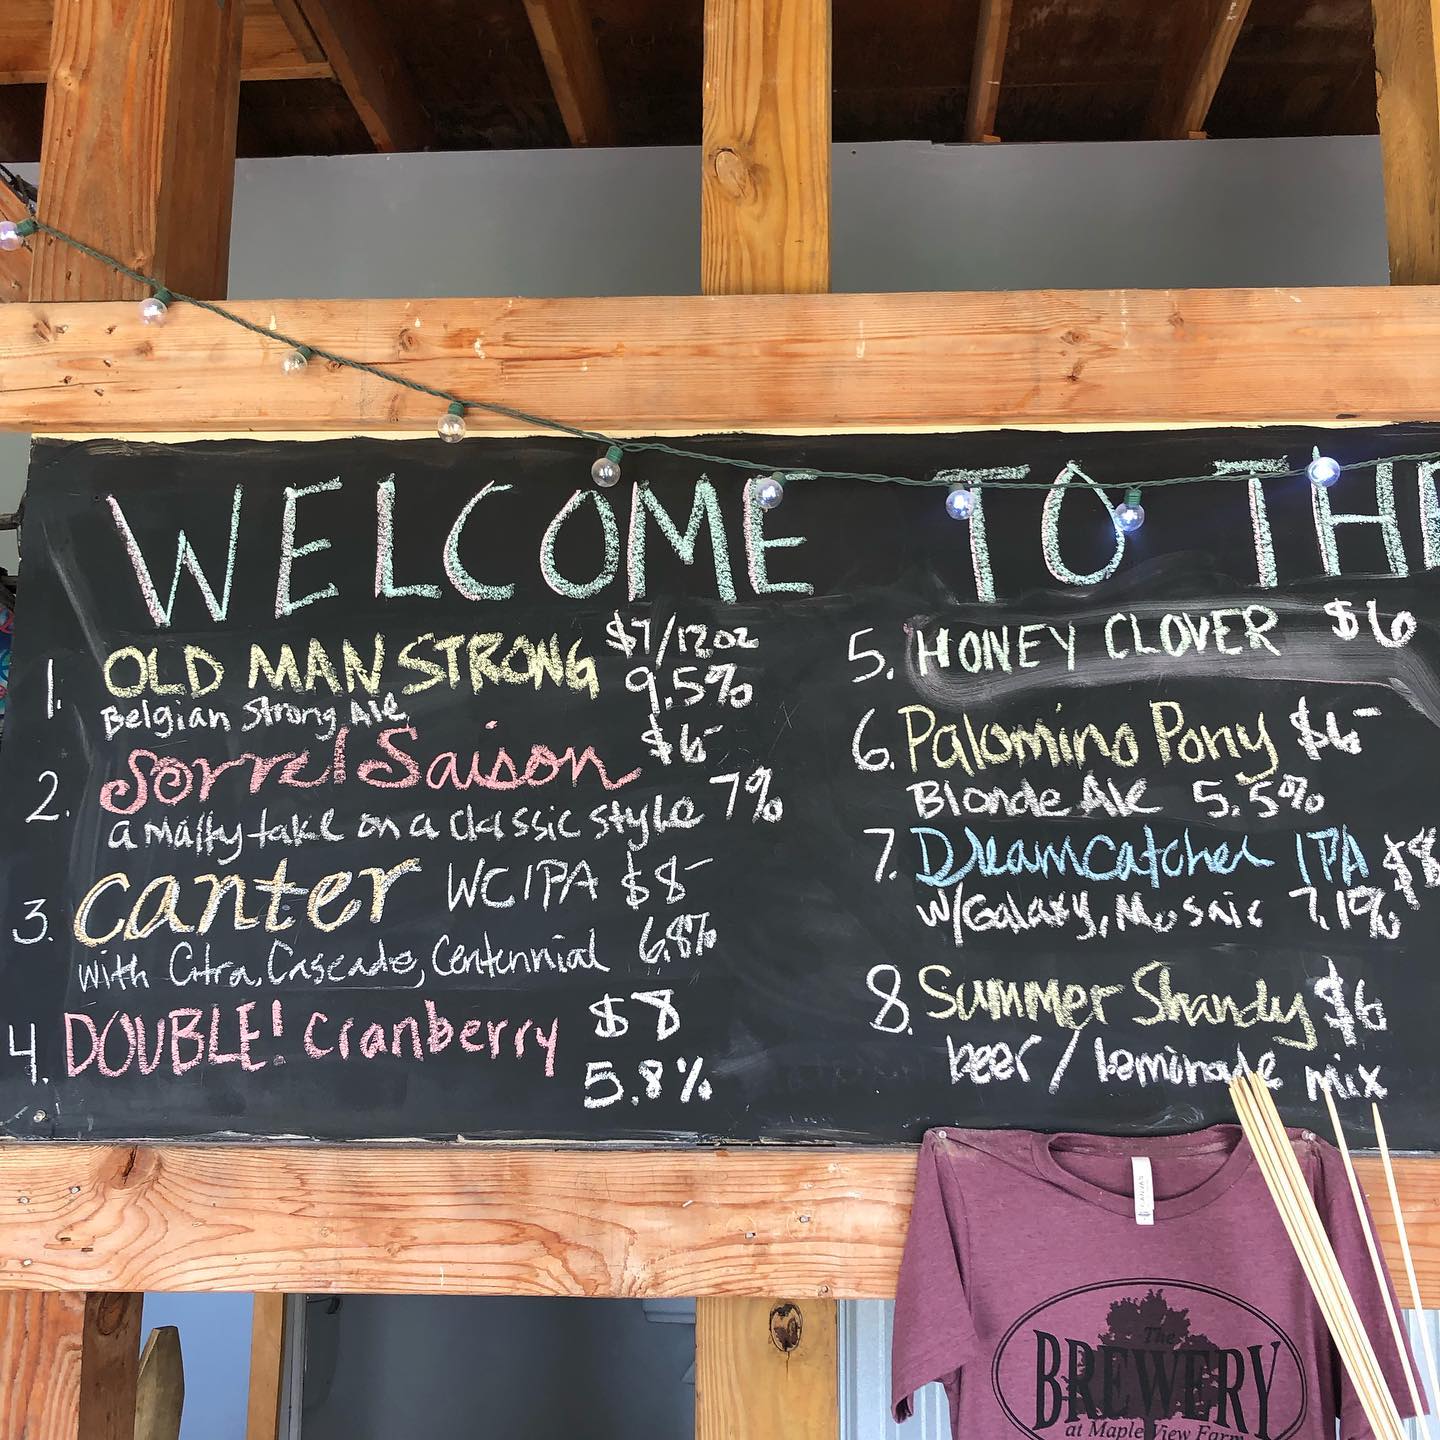 WELCOME TO THE
1. OLD MAN STRONG $7/12oz
9.5%
Belgian Strong Ale
2. Sorrel Saison $6-
7%
a malty take on a classic style
3. Canter WC IPA $8-
6.8%
with Citra, Cascade, Centennial
4. DOUBLE! Cranberry $8
5.8%
5. HONEY CLOVER $6
6. Palomino Pony $6-
Blonde Ale 5.5%
7. Dreamcatcher IPA $8
w/Galaxy, Mosaic 7.1%
8. Summer Shandy $6
beer/lemonade mix
CANVAS
The
BREWERY
at Maple View Farm